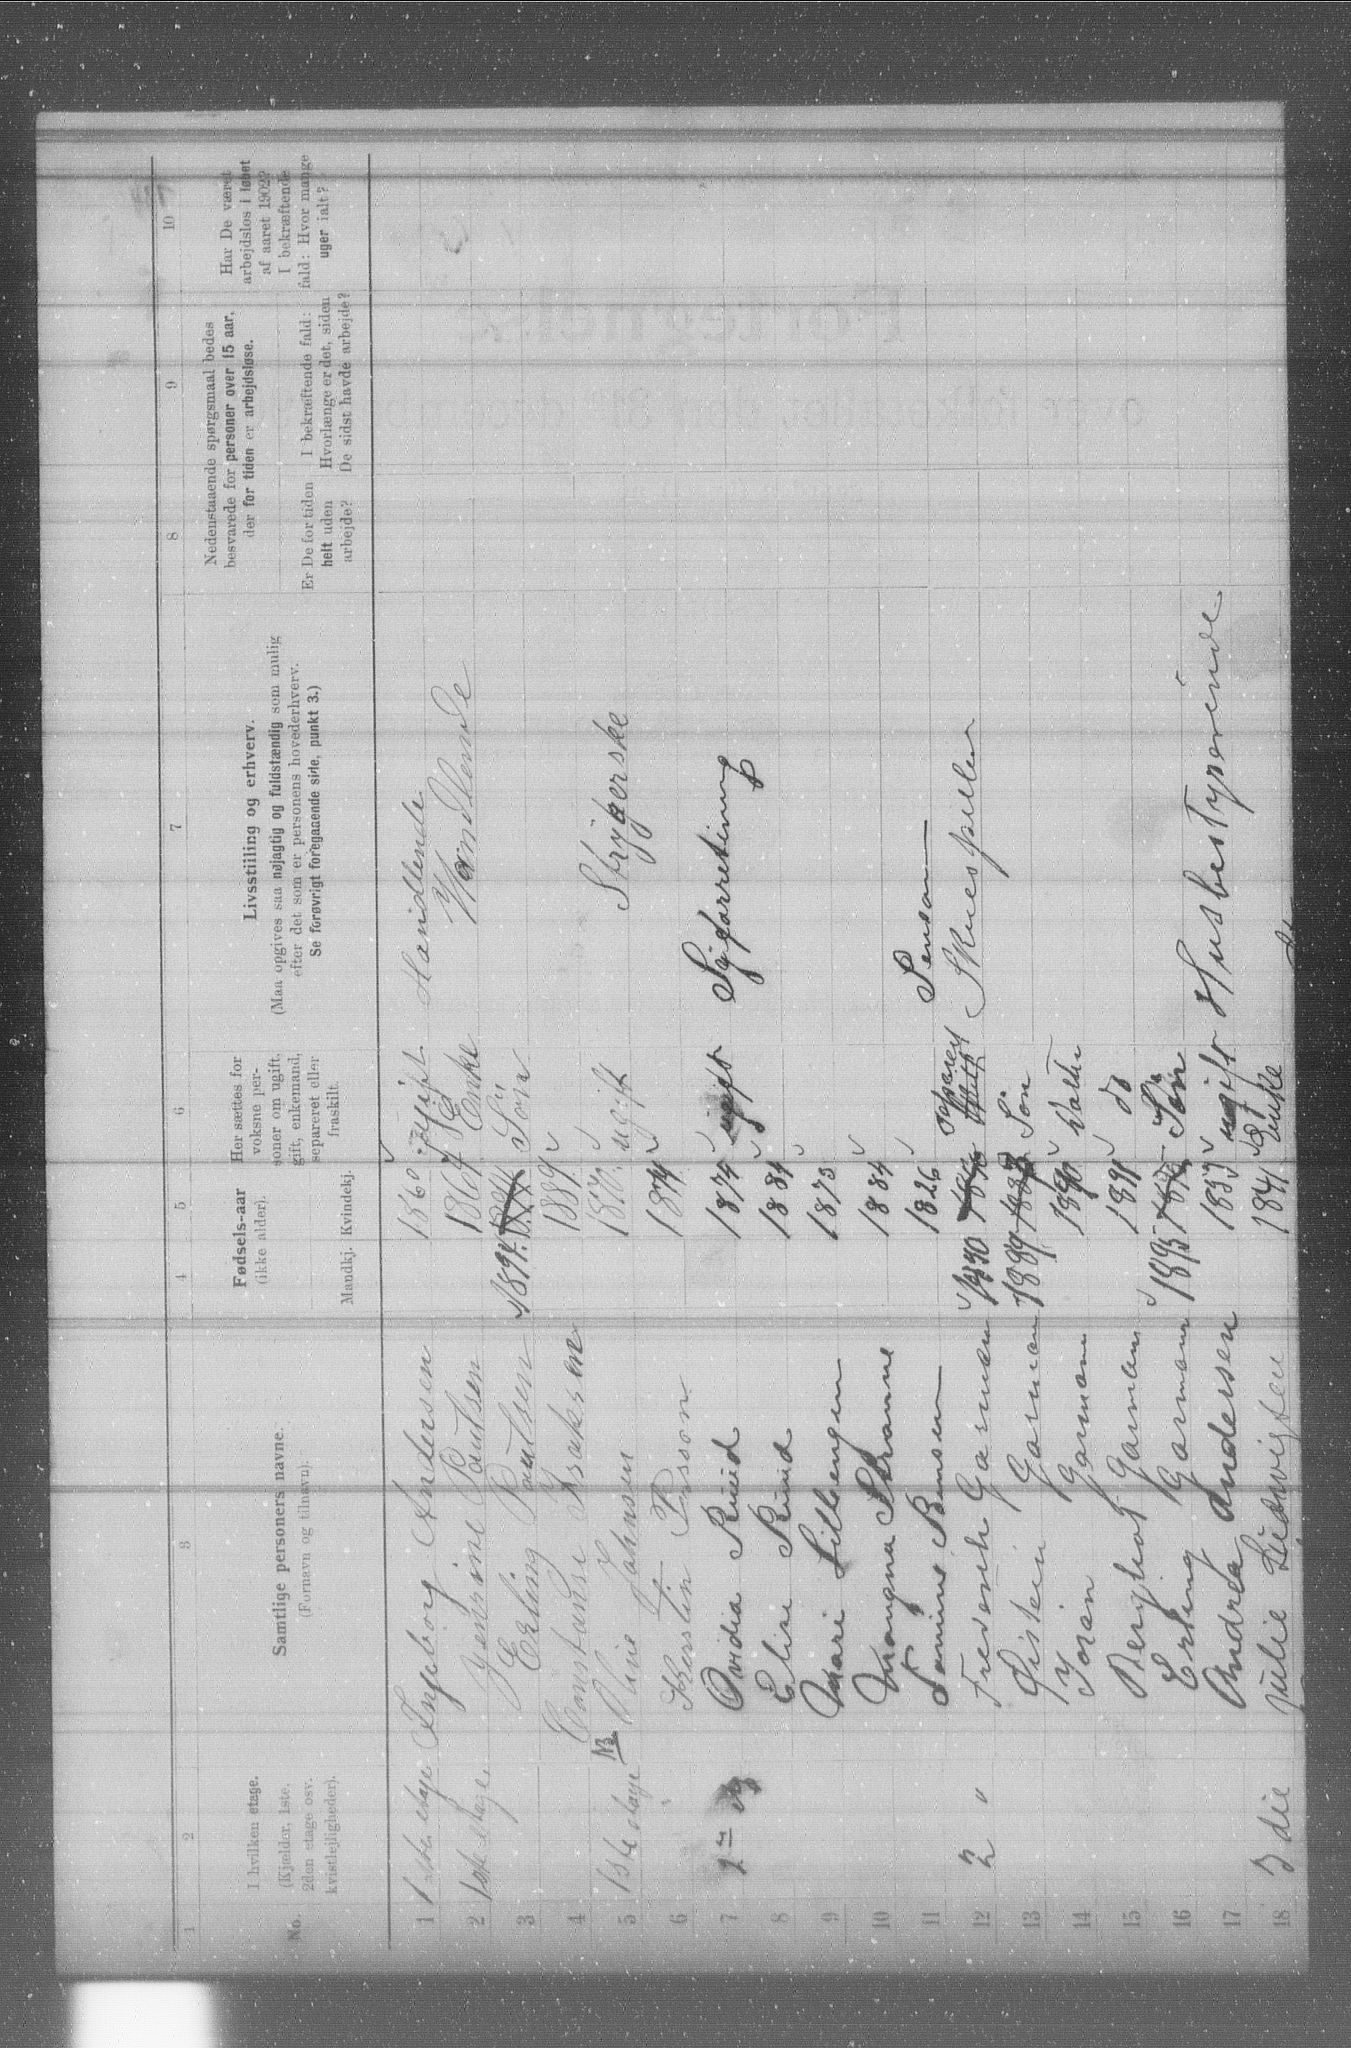 1 2 3 4 5 6 7 8 9 10
No.
I hvilken etage.
(Kjælder, 1ste,
2den etage osv.
kvistlejligheder).
Samtlige personers navne.
(Fornavn og tilnavn).
Fødsels-aar
(ikke alder).
Mandkj. Kvindekj.
Her sættes for
voksne per-
soner om ugift,
gift, enkemand,
separeret eller
fraskilt.
Livsstilling og erhverv.
(Maa opgives saa nøjagtig og fuldstændig som mulig
efter det som er personens hovederhverv.
Se forøvrigt foregaaende side, punkt 3.)
Nedenstaaende spørgsmaal bedes
besvarede for personer over 15 aar,
der for tiden er arbejdsløse.
Er De for tiden
helt uden
arbejde?
I bekræftende fald:
Hvorlænge er det, siden
De sidst havde arbejde?
Har De været
arbejdsløs i løbet
af aaret 1902?
I bekræftende
fald: Hvor mange
uger ialt?
1 1ste etage Ingeborg Andersen 1860 ugift Handlende
2 1ste etage Jensine Paulsen 1867 Enke Handlende
3 Erling Paulsen 1894 Søn
4 Constanse Isaksen 1889
5 1ste etage No Aline Johnsen ugift Strygerske
6 Kerstin Persson 1874
7 2 etg Ovidia Ruud 1874 ugift Sygforretning
8 Elise Ruud 1881
9 Mari Lillengen 1873
10 Magna Stranne 1884
11 Bensen 1826 Pension
12 2 " Frederik Garman separeret Skuespiller
13 Øistein Garman 1889 Søn
14 Garman 1890 Datter
15 Bergliot Garman 1891 do
16 Erling Garman 1895 Søn
17 Andrea Andersen 1853 ugift Husbestyrerinde
18 3die Julie Ludvigsen 1841 Enke